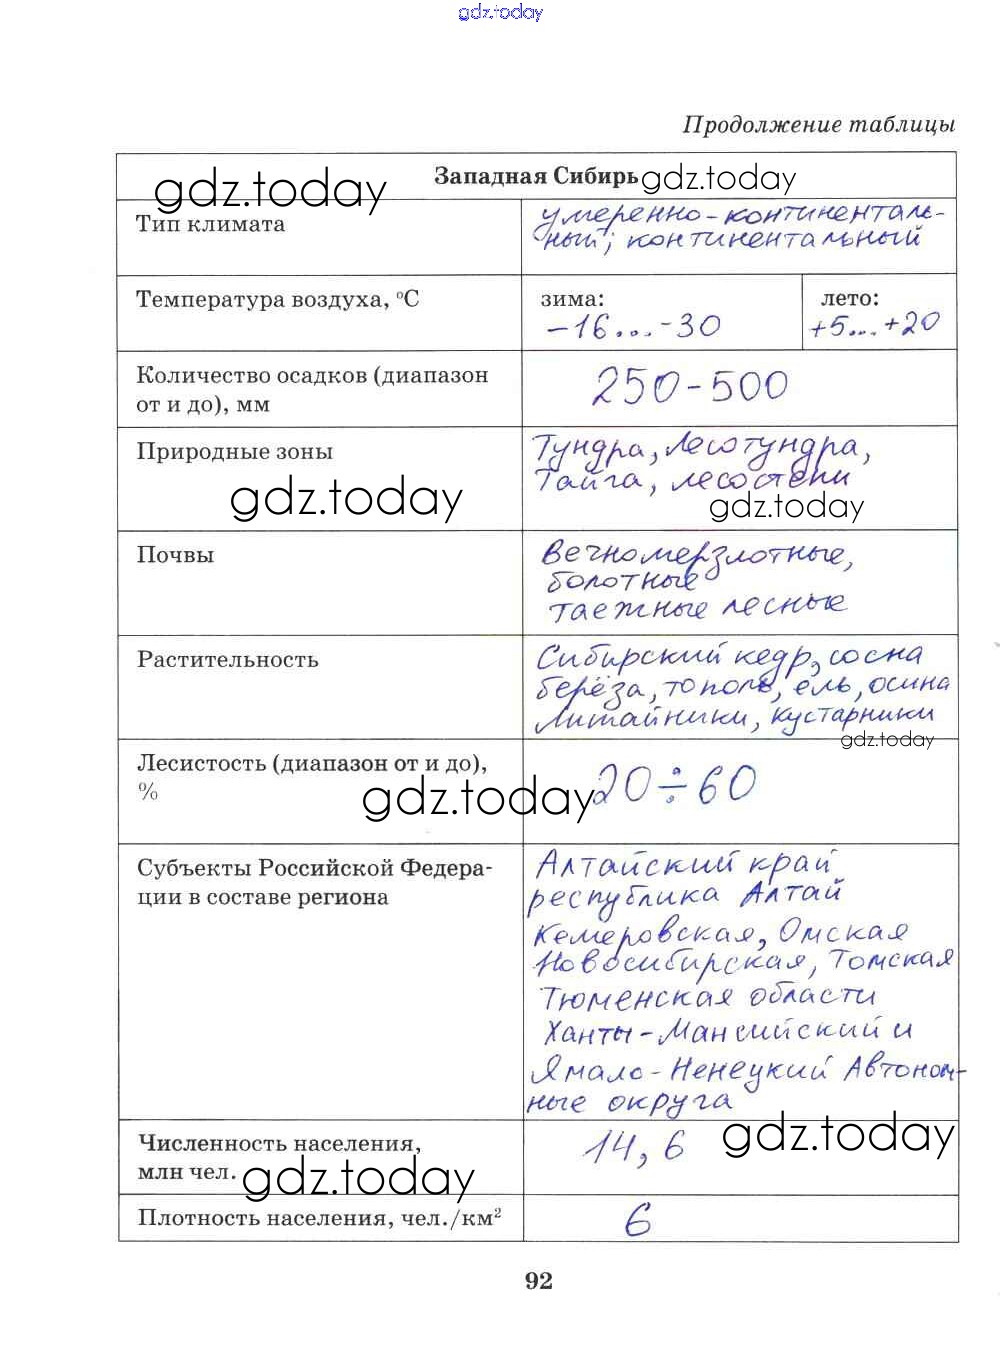 gdz.today
Продолжение таблицы
Западная Сибирь
gdz.today gdz.today
Тип климата
умеренно-континенталь-
ный; континентальный
Температура воздуха, °С
зима:
-16...-30
лето:
+5...+20
Количество осадков (диапазон
от и до), мм
250-500
Природные зоны
Тундра, Лесотундра,
Тайга, лесостепи
gdz.today gdz.today
Почвы
Вечномерзлотные,
болотные
таежные лесные
Растительность
Сибирский кедр, сосна
берёза, тополь, ель, осина
Лишайники, кустарники
gdz.today
Лесистость (диапазон от и до),
%
20÷60
gdz.today
Субъекты Российской Федера-
ции в составе региона
Алтайский край
республика Алтай
Кемеровская, Омская
Новосибирская, Томская
Тюменская области
Ханты-Мансийский и
Ямало-Ненецкий Автоном-
ные округа
Численность населения,
млн чел.
14,6
gdz.today
gdz.today
Плотность населения, чел./км²
6
92